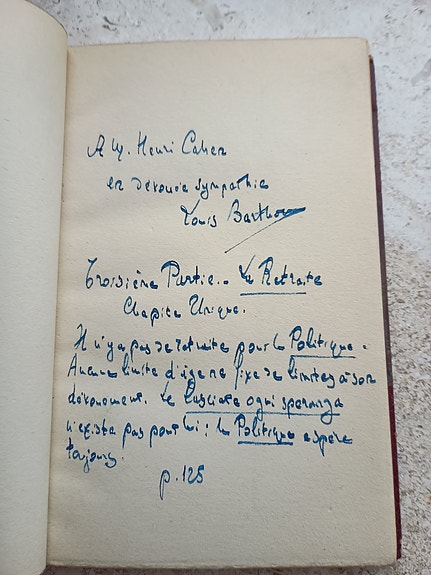 A M. Henri Cahen
en dévouée sympathie
Louis Barthou
Troisième Partie.. La Retraite
Chapitre Unique.
Il n'y a pas de retraite pour le Politique.
Aucune limite d'âge ne fixe de limites à son
dévouement. Le Lasciate ogni speranza
n'existe pas pour lui : le Politique espère
toujours.
p. 125